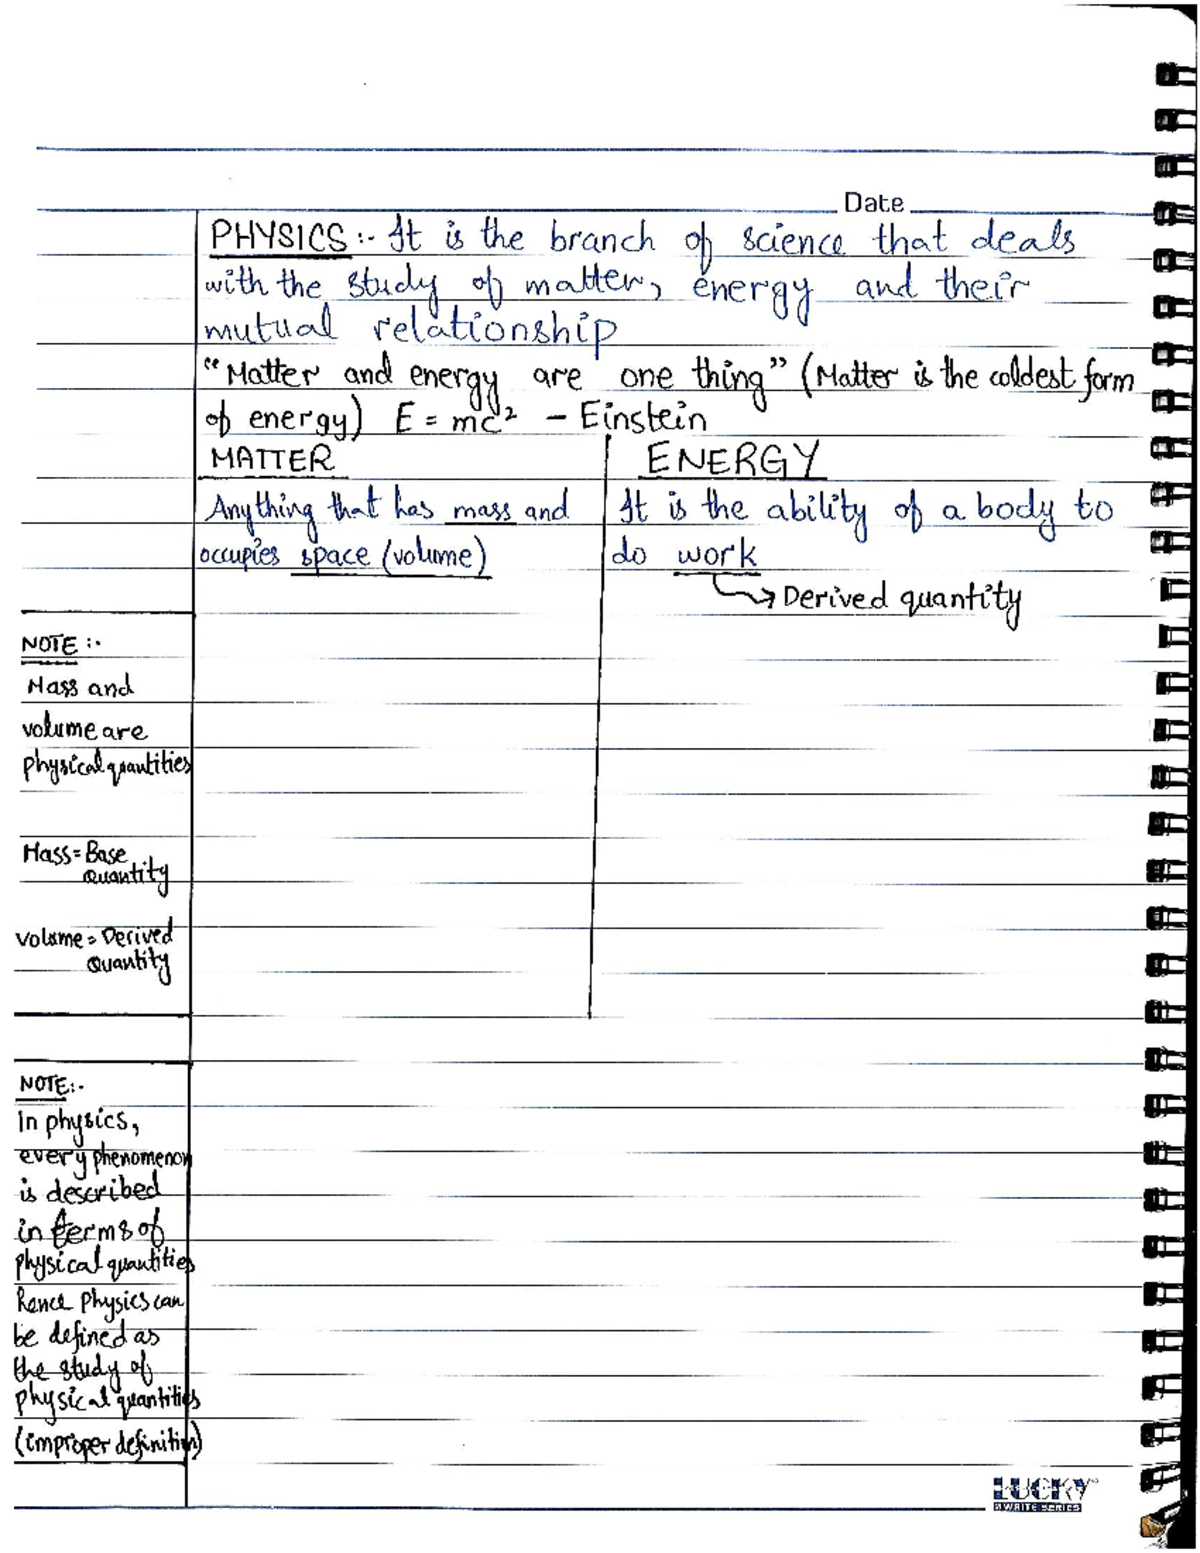 Date
PHYSICS :- It is the branch of science that deals
with the study of matter, energy and their
mutual relationship
"Matter and energy are one thing" (Matter is the coldest form
of energy) E = mc² - Einstein
MATTER
Anything that has mass and
occupies space (volume)
ENERGY
It is the ability of a body to
do work
Derived quantity
NOTE :-
Mass and
volume are
physical quantities
Mass = Base
Quantity
volume = Derived
Quantity
NOTE:-
In physics,
every phenomenon
is described
in terms of
physical quantities
Hence Physics can
be defined as
the study of
physical quantities
(improper definition)
LUCKY
WRITE SERIES